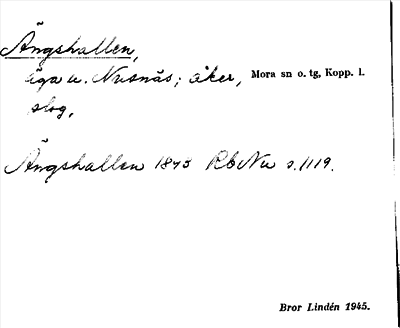 Ängshallen,
äga u. Nusnäs; åker, Mora sn o. tg, Kopp. l.
slog,
Ängshallen 1843 RbNu s. 1119.
Bror Lindén 1945.